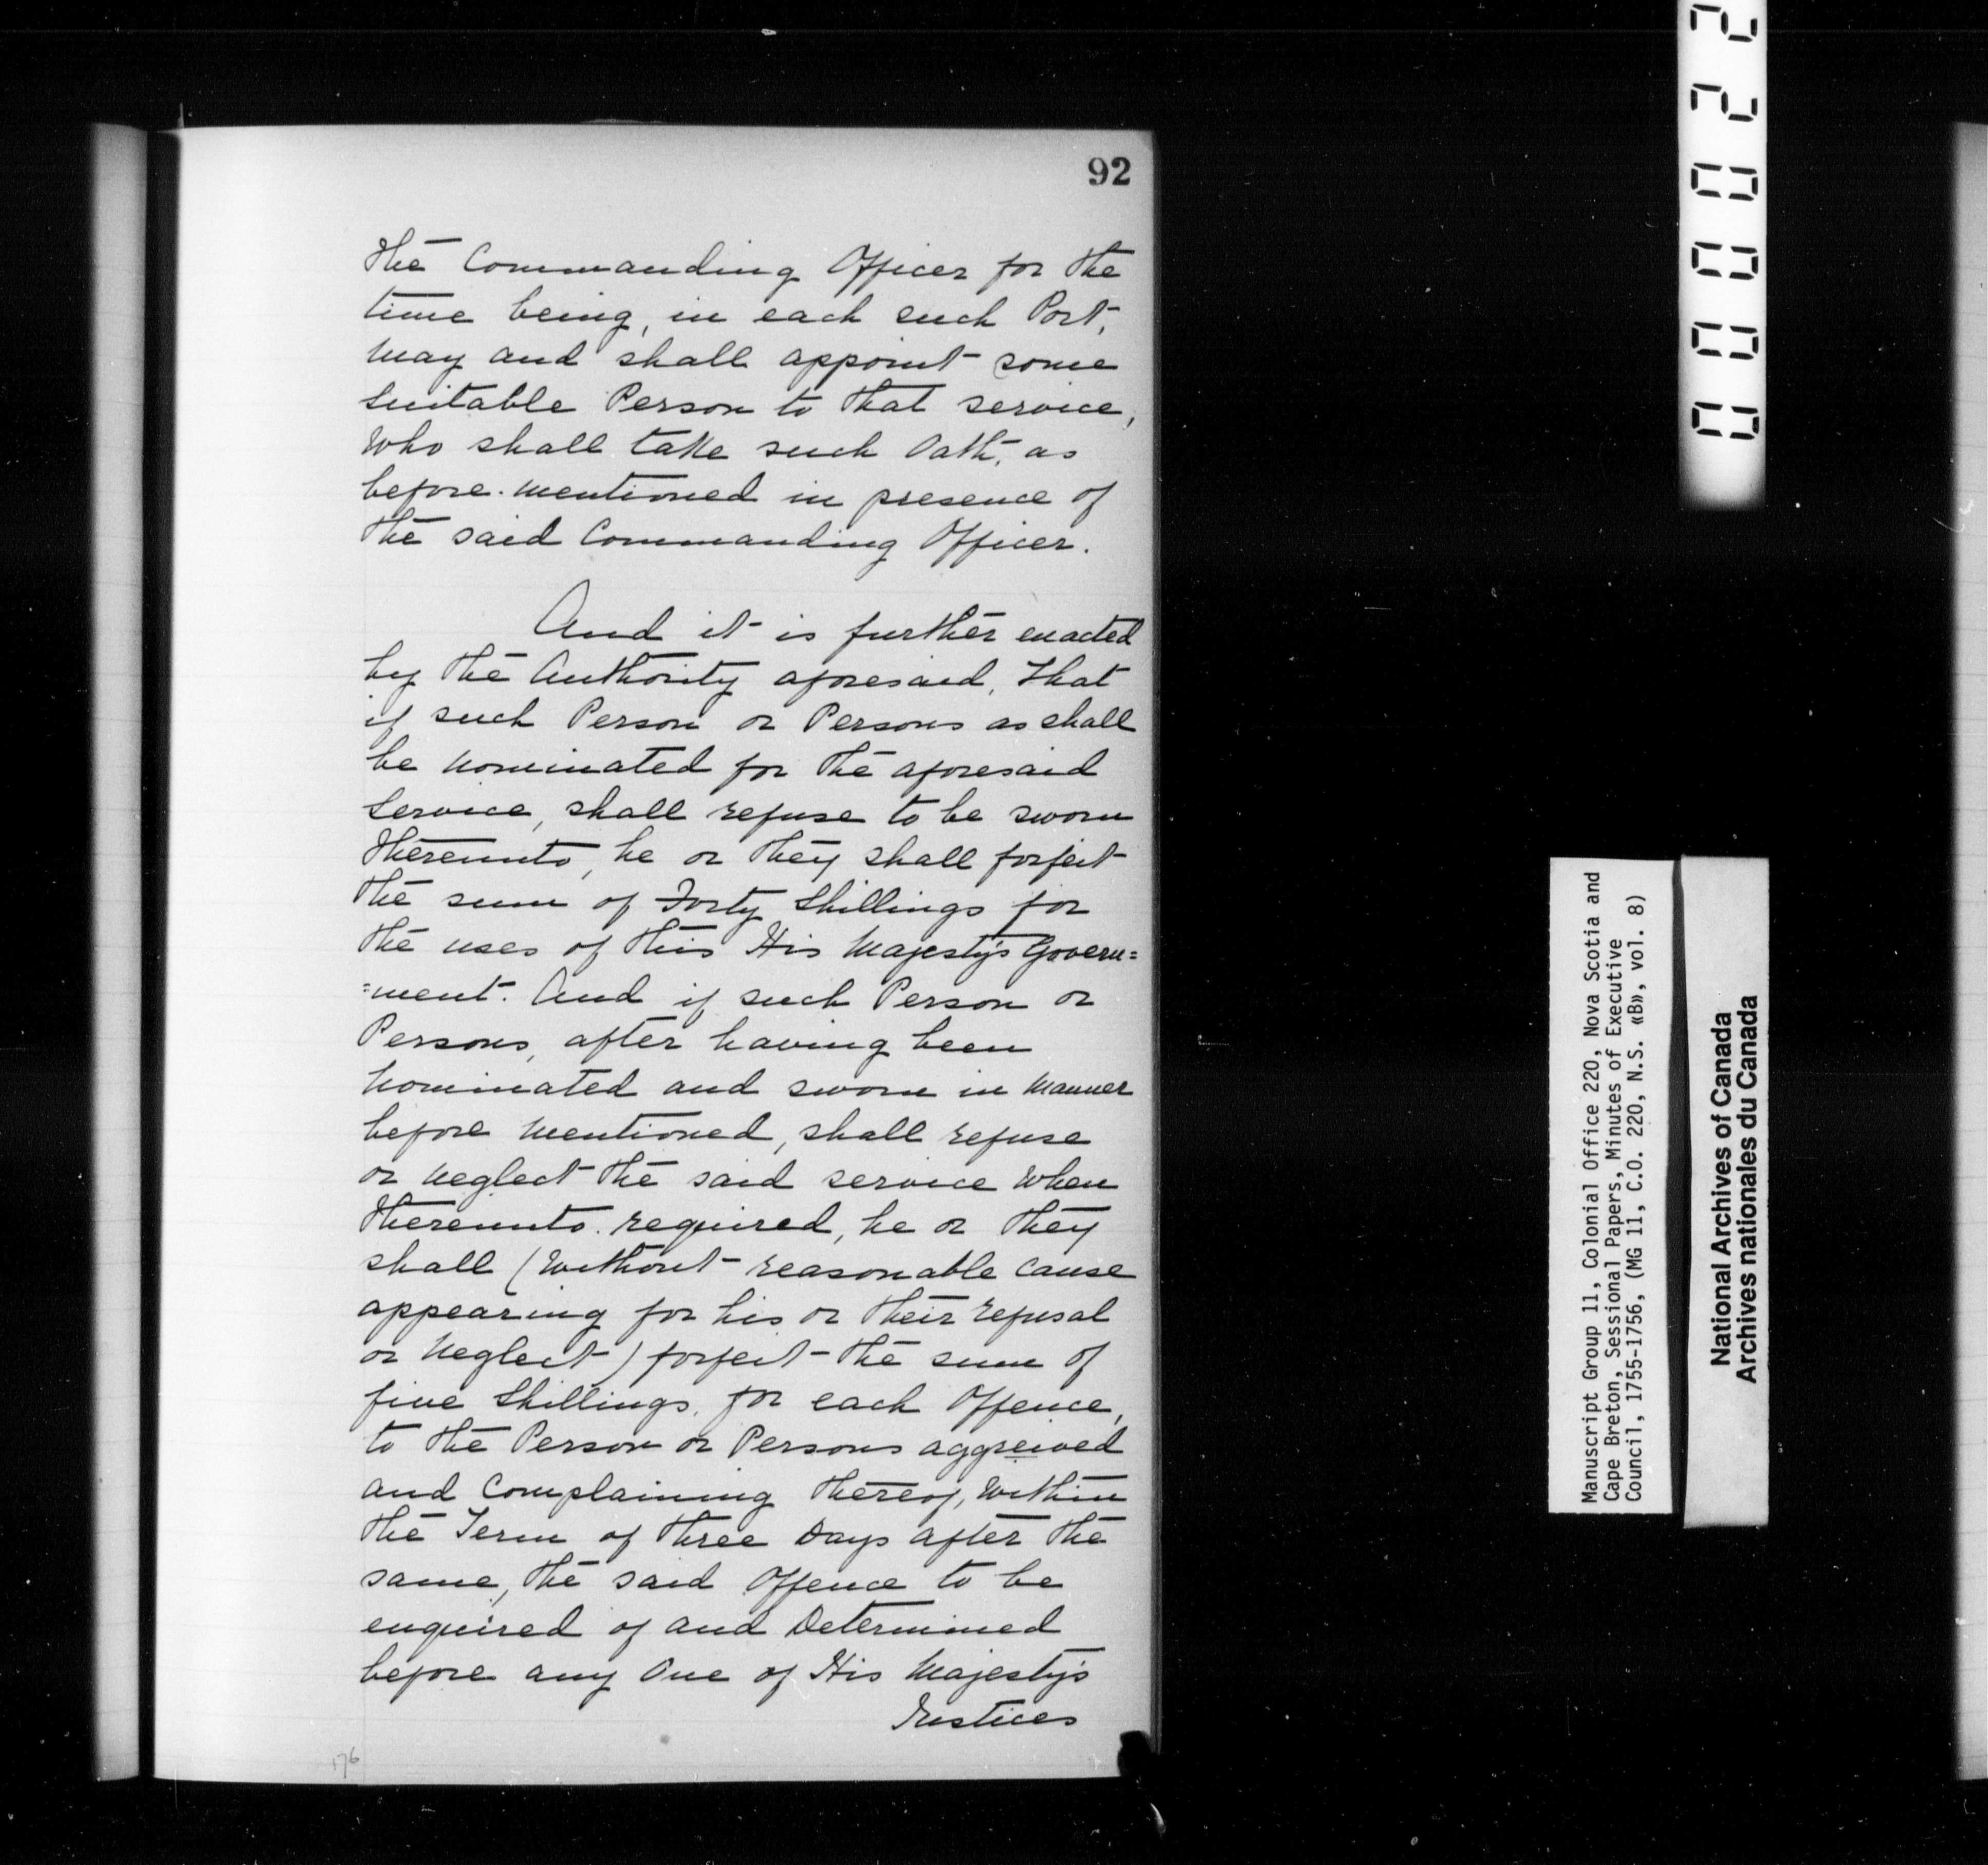 92
the Commanding Officer for the
time being, in each such Port,
may and shall appoint some
suitable Person to that service,
who shall take such Oath, as
before mentioned in presence of
the said Commanding Officer.
And it is further enacted
by the Authority aforesaid, That
if such Person or Persons as shall
be nominated for the aforesaid
Service, shall refuse to be sworn
thereunto, he or they shall forfeit
the sum of Forty Shillings for
the uses of this His Majesty's Govern=
=ment. And if such Person or
Persons, after having been
nominated and sworn in manner
before mentioned, shall refuse
or neglect the said service when
thereunto required, he or they
shall (without reasonable cause
appearing for his or their refusal
or neglect) forfeit the sum of
five Shillings, for each Offence,
to the Person or Persons aggreived
and Complaining thereof, within
the Term of three Days after the
same, the said Offence to be
enquired of and Determined
before any One of His Majesty's
Justices
176
000022
Manuscript Group 11, Colonial Office 220, Nova Scotia and
Cape Breton, Sessional Papers, Minutes of Executive
Council, 1755-1756, (MG 11, C.O. 220, N.S. «B», vol. 8)
National Archives of Canada
Archives nationales du Canada